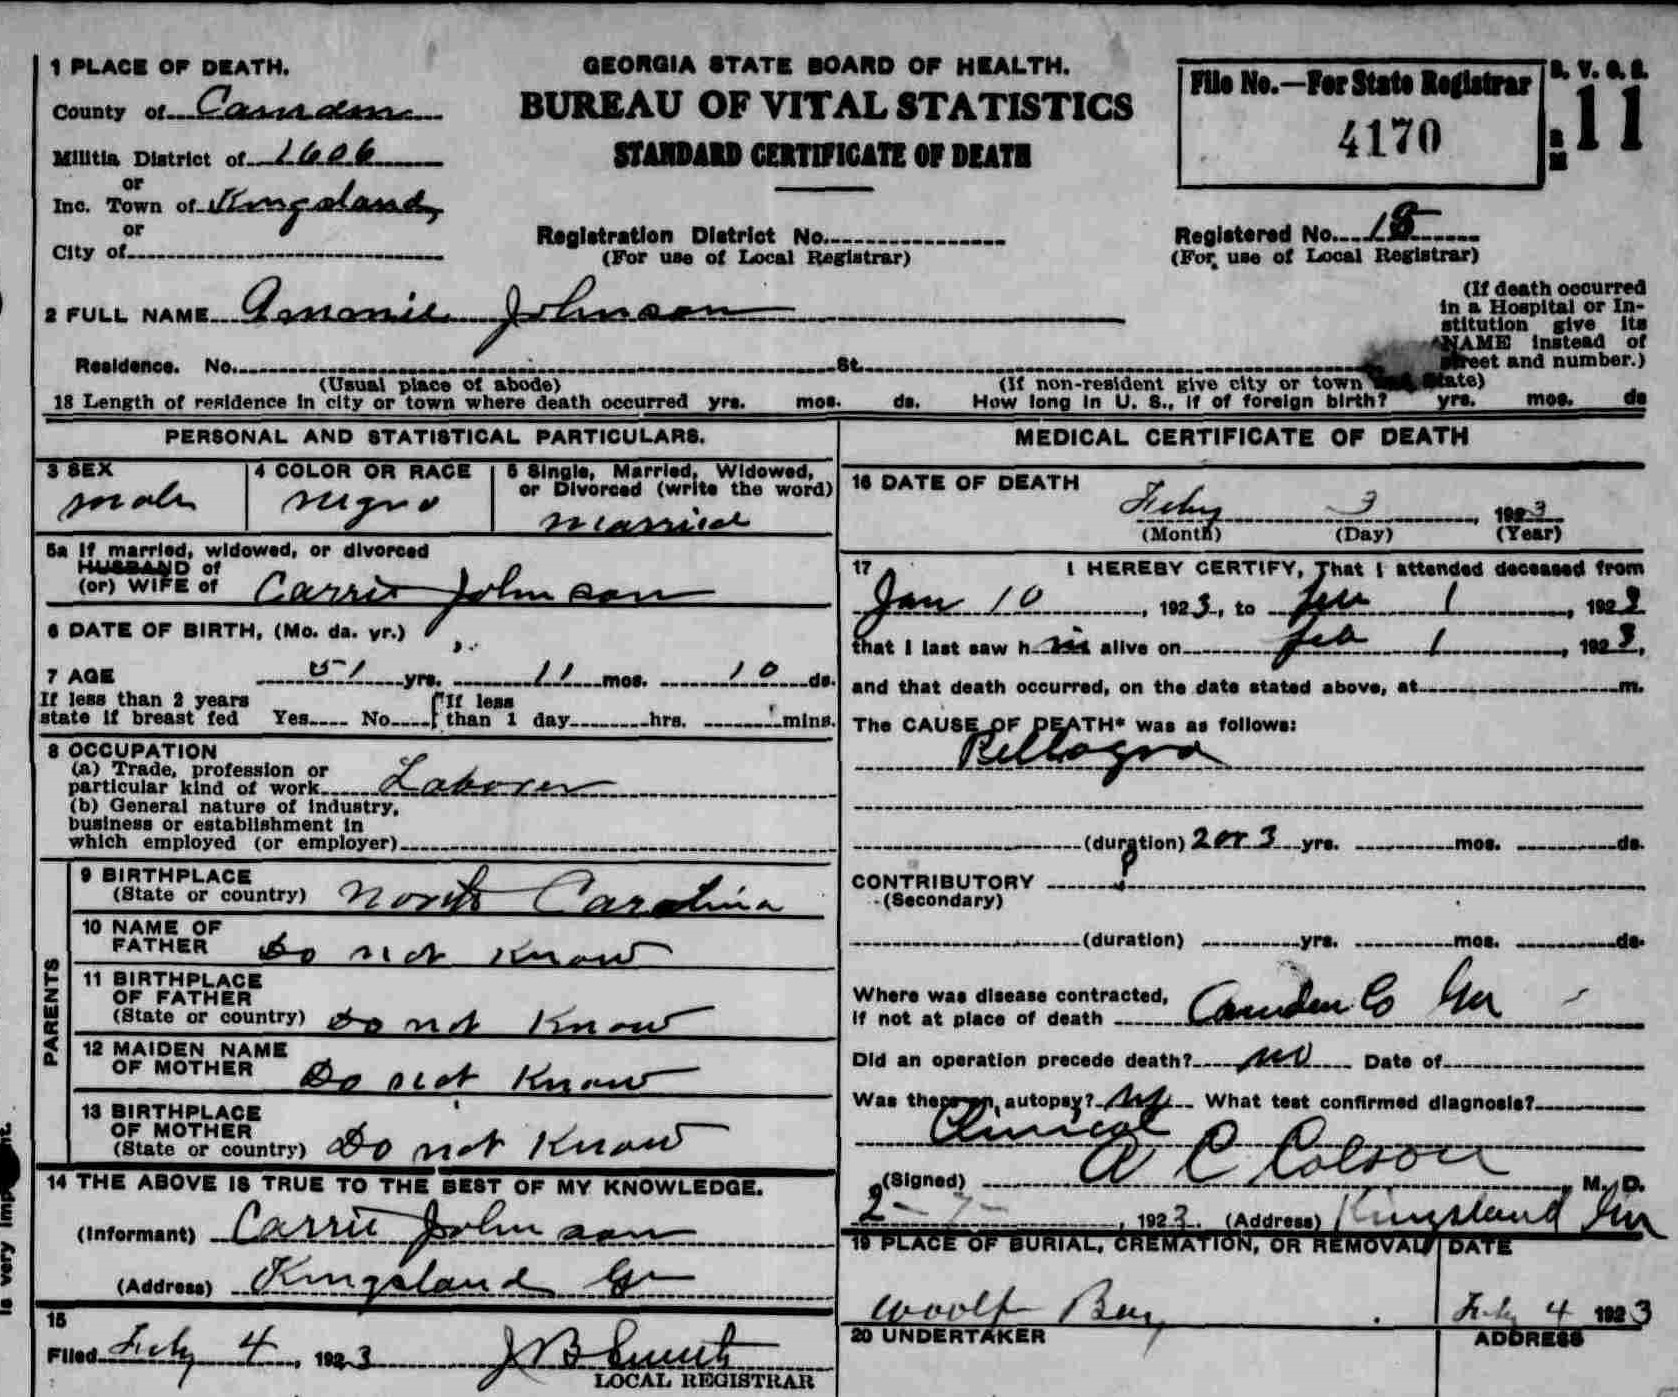 1 PLACE OF DEATH.
County of Camden
Militia District of 1606
or
Inc. Town of Kingsland,
or
City of
GEORGIA STATE BOARD OF HEALTH.
BUREAU OF VITAL STATISTICS
STANDARD CERTIFICATE OF DEATH
Registration District No.
(For use of Local Registrar)
File No.—For State Registrar
4170
11
Registered No. 18
(For use of Local Registrar)
2 FULL NAME Johnson
(If death occurred
in a Hospital or In-
stitution give its
NAME instead of
street and number.)
Residence. No. St.
(Usual place of abode) (If non-resident give city or town and State)
18 Length of residence in city or town where death occurred yrs. mos. ds. How long in U. S., if of foreign birth? yrs. mos. ds
PERSONAL AND STATISTICAL PARTICULARS.
3 SEX
male
4 COLOR OR RACE
negro
5 Single, Married, Widowed,
or Divorced (write the word)
married
5a If married, widowed, or divorced
HUSBAND of
(or) WIFE of Carrie Johnson
6 DATE OF BIRTH, (Mo. da. yr.)
7 AGE 51 yrs. 11 mos. 10 ds.
If less than 2 years
state if breast fed Yes No
If less
than 1 day hrs. mins.
8 OCCUPATION
(a) Trade, profession or
particular kind of work Laborer
(b) General nature of industry,
business or establishment in
which employed (or employer)
PARENTS
9 BIRTHPLACE
(State or country) North Carolina
10 NAME OF
FATHER Do not Know
11 BIRTHPLACE
OF FATHER
(State or country) Do not Know
12 MAIDEN NAME
OF MOTHER Do not Know
13 BIRTHPLACE
OF MOTHER
(State or country) Do not Know
14 THE ABOVE IS TRUE TO THE BEST OF MY KNOWLEDGE.
(Informant) Carrie Johnson
(Address) Kingsland Ga
15
Filed Feby 4, 1923 J B Smith
LOCAL REGISTRAR
MEDICAL CERTIFICATE OF DEATH
16 DATE OF DEATH
Feby 3, 1923
(Month) (Day) (Year)
17 I HEREBY CERTIFY, That I attended deceased from
Jan 10, 1923, to Feb 1, 1923
that I last saw h im alive on Feb 1, 1923,
and that death occurred, on the date stated above, at m.
The CAUSE OF DEATH* was as follows:
Pellagra
(duration) 2 or 3 yrs. mos. ds.
CONTRIBUTORY
(Secondary)
(duration) yrs. mos. ds.
Where was disease contracted,
If not at place of death Camden Co Ga
Did an operation precede death? no Date of
Was there an autopsy? no What test confirmed diagnosis?
Clinical
(Signed) A C Colson, M. D.
2-7-, 1923. (Address) Kingsland Ga
19 PLACE OF BURIAL, CREMATION, OR REMOVAL DATE
Woolf Bay Feby 4 1923
20 UNDERTAKER ADDRESS